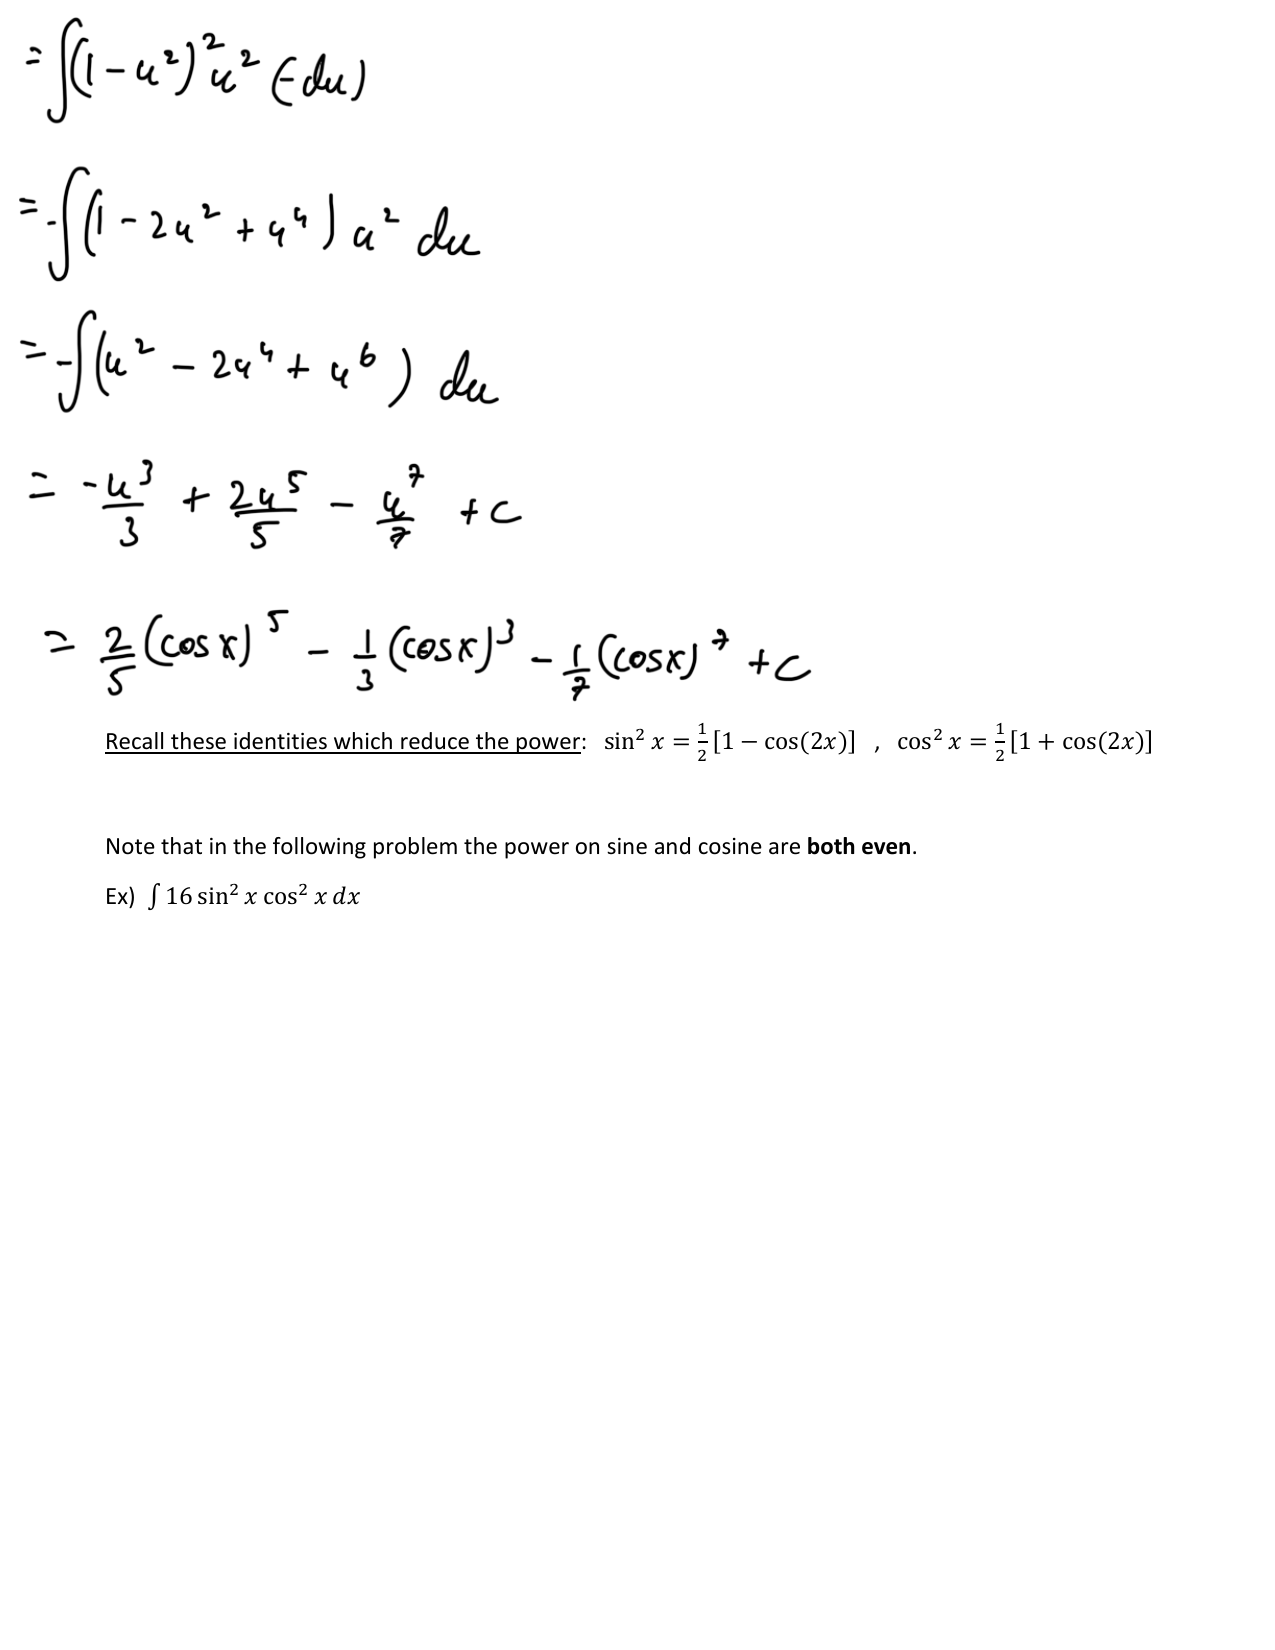 = ∫(1 - u²)² u² (-du)
= -∫(1 - 2u² + u⁴) u² du
= -∫(u² - 2u⁴ + u⁶) du
= -u³/3 + 2u⁵/5 - u⁷/7 + c
= 2/5 (cosx)⁵ - 1/3 (cosx)³ - 1/7 (cosx)⁷ + c
Recall these identities which reduce the power: sin² x = 1/2 [1 − cos(2x)] , cos² x = 1/2 [1 + cos(2x)]
Note that in the following problem the power on sine and cosine are both even.
Ex) ∫ 16 sin² x cos² x dx